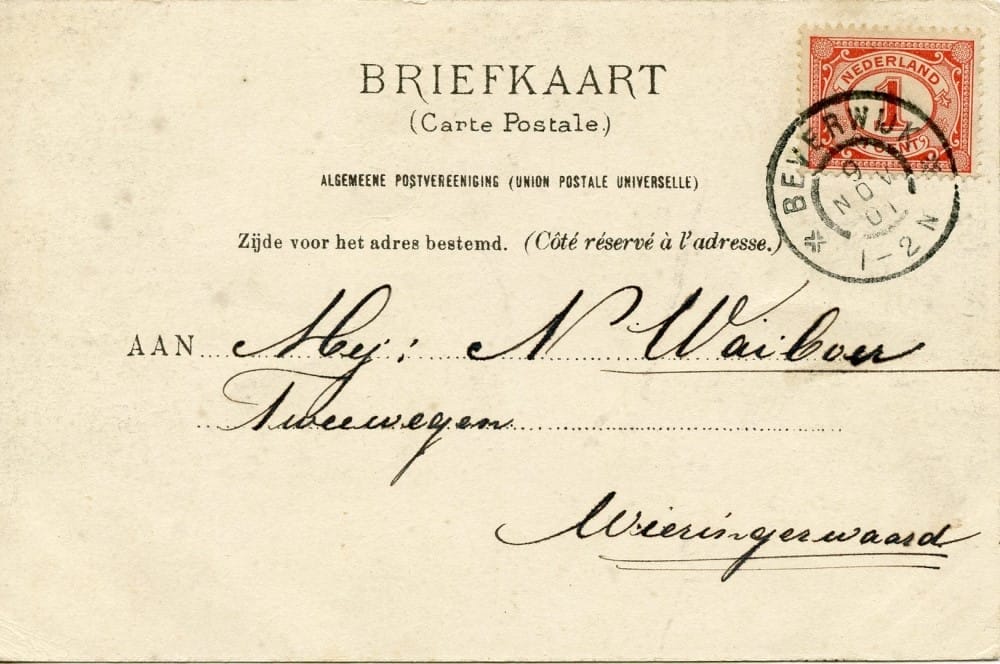 BRIEFKAART
(Carte Postale.)
NEDERLAND
1
CENT
ALGEMEENE POSTVEREENIGING (UNION POSTALE UNIVERSELLE)
BEVERWIJK
9
NOV
01
1-2 N
Zijde voor het adres bestemd. (Côté réservé à l'adresse.)
AAN Mej: N Waiboer
Tweewegen
Wieringerwaard